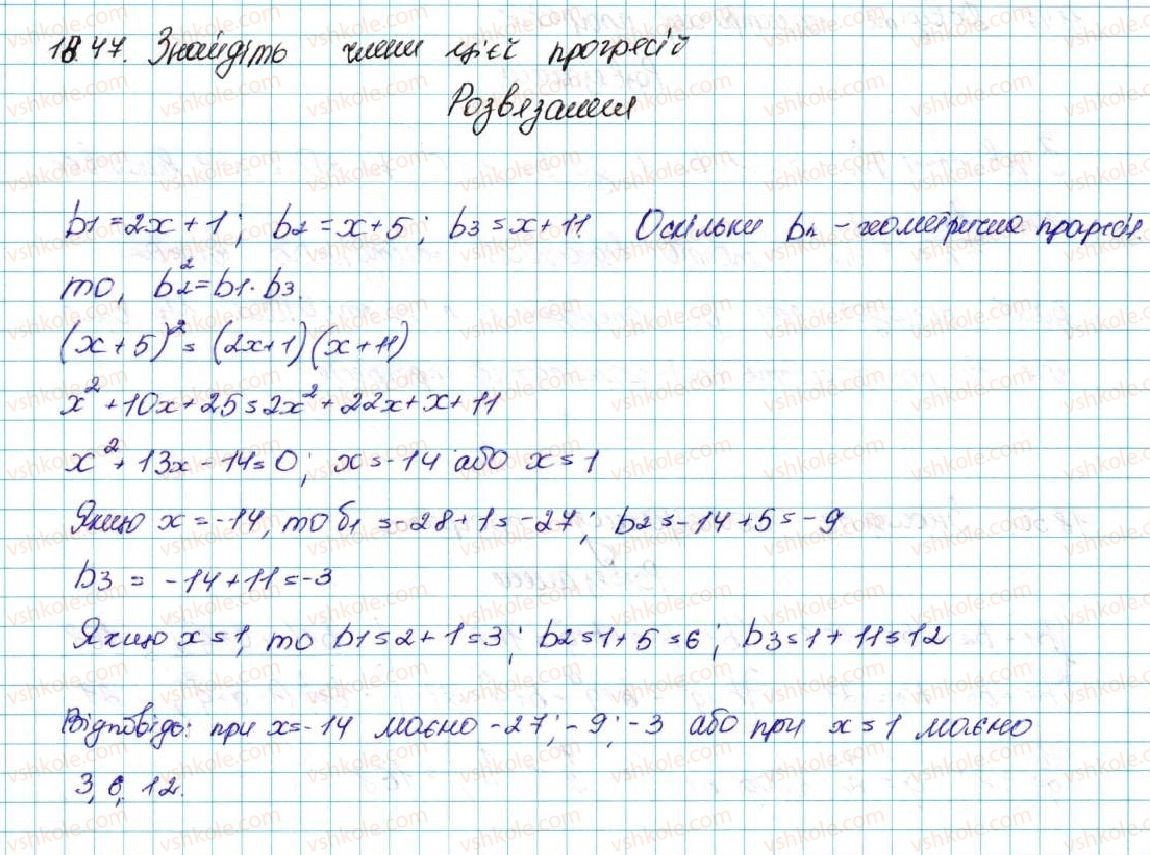 18.47. Знайдіть члени цієї прогресії
Розвязання
b1 = 2x + 1; b2 = x + 5; b3 = x + 11. Оскільки bn - геометрична прогресія.
то, b2² = b1 · b3.
(x + 5)² = (2x + 1)(x + 11)
x² + 10x + 25 = 2x² + 22x + x + 11
x² + 13x - 14 = 0; x = -14 або x = 1
Якщо x = -14, то b1 = -28 + 1 = -27; b2 = -14 + 5 = -9
b3 = -14 + 11 = -3
Якщо x = 1, то b1 = 2 + 1 = 3; b2 = 1 + 5 = 6; b3 = 1 + 11 = 12
Відповідь: при x = -14 маємо -27; -9; -3 або при x = 1 маємо
3, 6, 12.